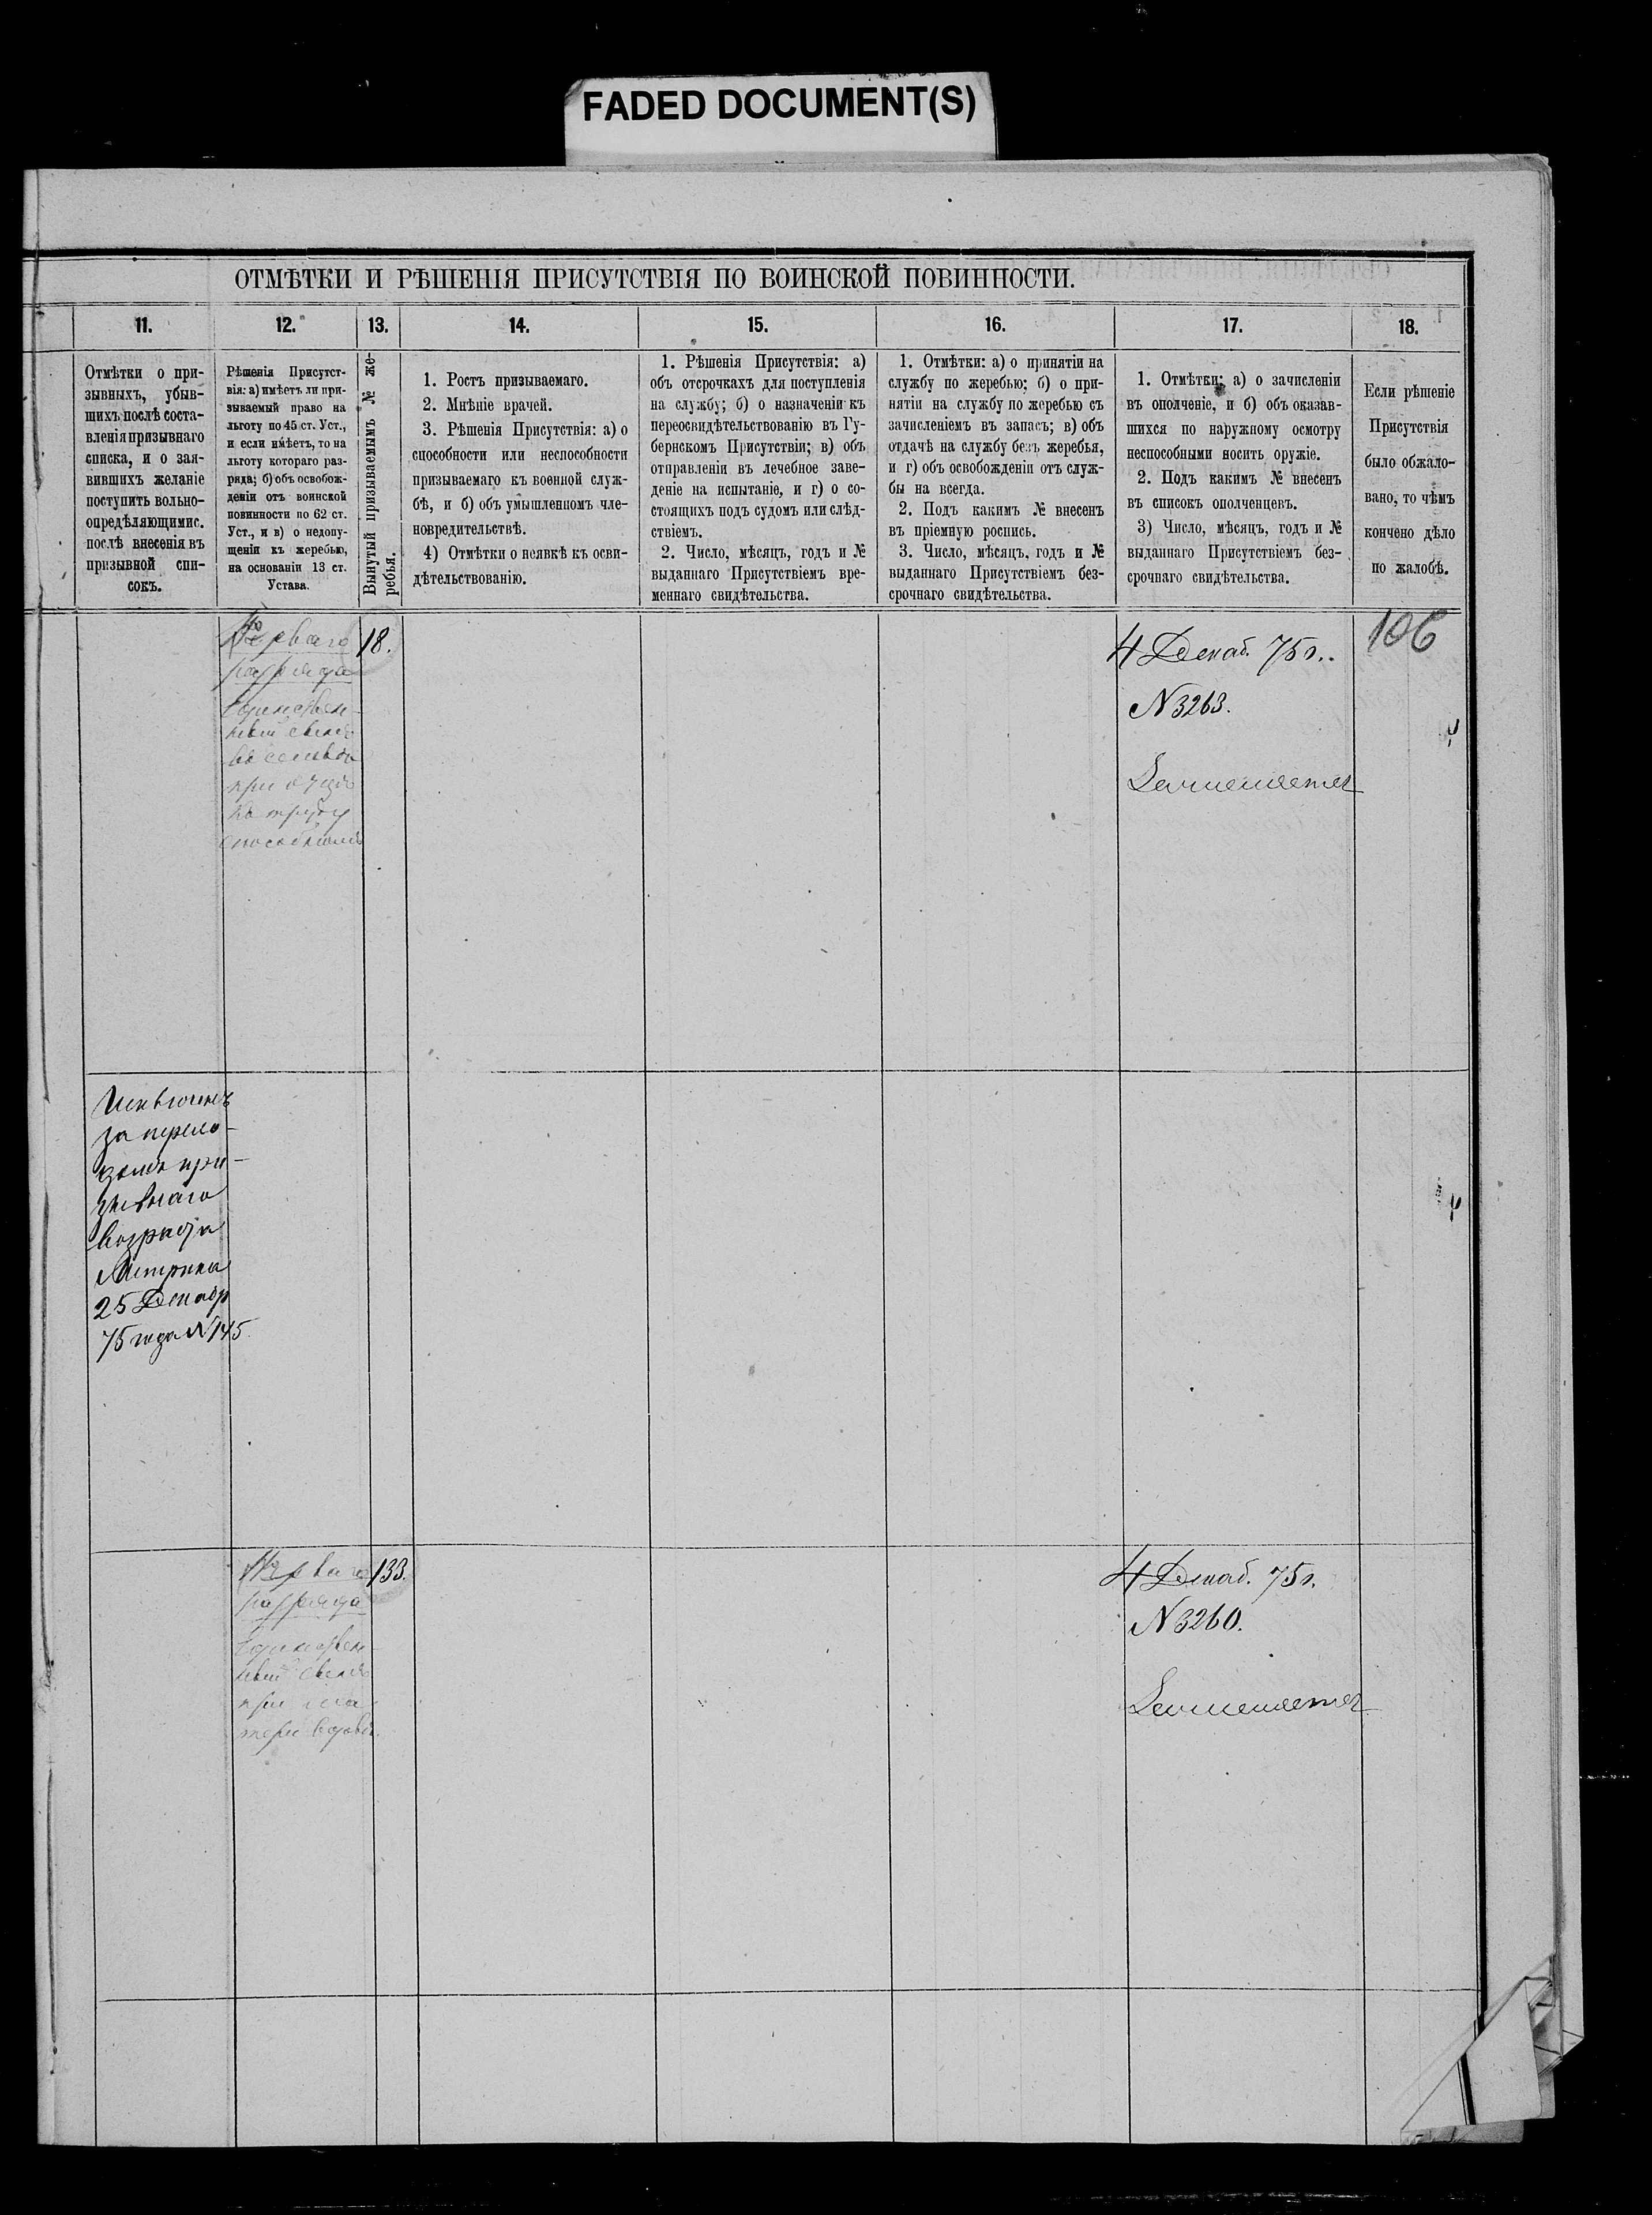 FADED DOCUMENT(S)
ОТМѢТКИ И РѢШЕНІЯ ПРИСУТСТВІЯ ПО ВОИНСКОЙ ПОВИННОСТИ.
11.
Отмѣтки о при-
зывныхъ, убыв-
шихъ послѣ соста-
вленія призывнаго
списка, и о зая-
вившихъ желаніе
поступить вольно-
опредѣляющимис.
послѣ внесенія въ
призывной спи-
сокъ.
12.
Рѣшенія Присутст-
вія: а) имѣетъ ли при-
зываемый право на
льготу по 45 ст. Уст.,
и если имѣетъ, то на
льготу котораго раз-
ряда; б) объ освобож-
деніи отъ воинской
повинности по 62 ст.
Уст., и в) о недопу-
щеніи къ жеребью,
на основаніи 13 ст.
Устава.
13.
Вынутый призываемымъ № же-
ребья.
14.
1. Ростъ призываемаго.
2. Мнѣніе врачей.
3. Рѣшенія Присутствія: а) о
способности или неспособности
призываемаго къ военной служ-
бѣ, и б) объ умышленномъ чле-
новредительствѣ.
4) Отмѣтки о неявкѣ къ осви-
дѣтельствованію.
15.
1. Рѣшенія Присутствія: а)
объ отсрочкахъ для поступленія
на службу; б) о назначеніи къ
переосвидѣтельствованію въ Гу-
бернскомъ Присутствіи; в) объ
отправленіи въ лечебное заве-
деніе на испытаніе, и г) о со-
стоящихъ подъ судомъ или слѣд-
ствіемъ.
2. Число, мѣсяцъ, годъ и №
выданнаго Присутствіемъ вре-
меннаго свидѣтельства.
16.
1. Отмѣтки: а) о принятіи на
службу по жеребью; б) о при-
нятіи на службу по жеребью съ
зачисленіемъ въ запасъ; в) объ
отдачѣ на службу безъ жеребья,
и г) объ освобожденіи отъ служ-
бы на всегда.
2. Подъ какимъ № внесенъ
въ пріемную роспись.
3. Число, мѣсяцъ, годъ и №
выданнаго Присутствіемъ без-
срочнаго свидѣтельства.
17.
1. Отмѣтки: а) о зачисленіи
въ ополченіе, и б) объ оказав-
шихся по наружному осмотру
неспособными носить оружіе.
2. Подъ какимъ № внесенъ
въ списокъ ополченцевъ.
3) Число, мѣсяцъ, годъ и №
выданнаго Присутствіемъ без-
срочнаго свидѣтельства.
18.
Если рѣшеніе
Присутствія
было обжало-
вано, то чѣмъ
кончено дѣло
по жалобѣ.
Перваго
разряда
Единствен-
ный сынъ
въ семьѣ
при отцѣ
къ труду
способномъ
18.
4 Декаб. 75 г.
N 3263.
106
Исключенъ
за
при-
зывнаго
возраста
Метрика
25 Декабр
75 года N 145.
Перваго
разряда
Единствен-
ный сынъ
при ма-
тери вдовѣ.
133.
4 Декаб. 75 г.
N 3260.